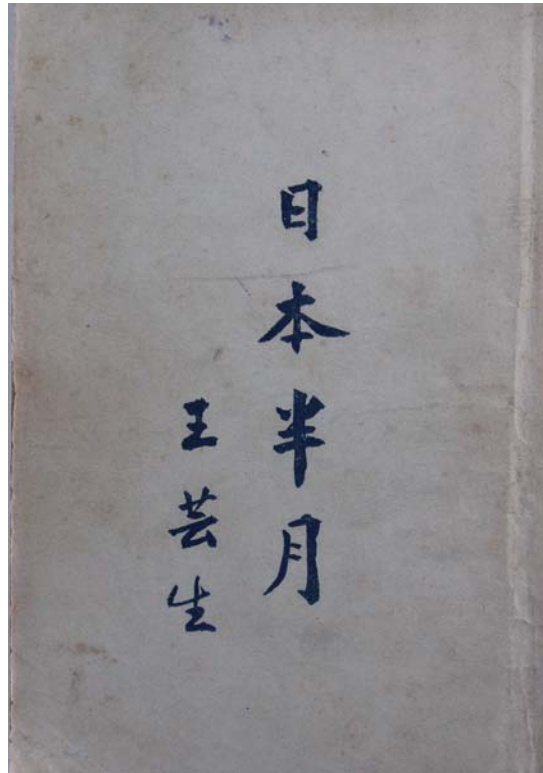 日本半月
王芸生